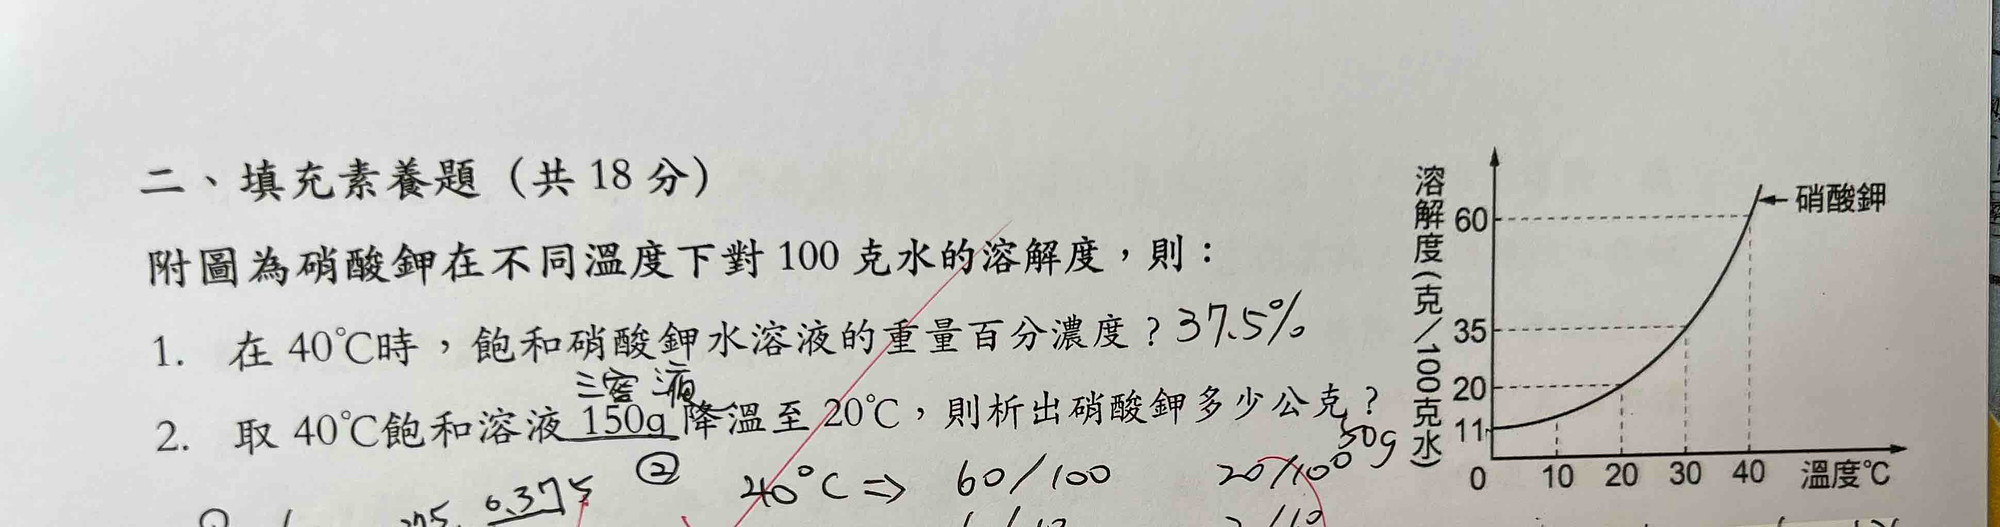 二、填充素養題（共 18 分）
附圖為硝酸鉀在不同溫度下對 100 克水的溶解度，則：
1. 在 40℃時，飽和硝酸鉀水溶液的重量百分濃度？37.5%
溶液
2. 取 40℃飽和溶液 150g 降溫至 20℃，則析出硝酸鉀多少公克？
50g
② 40°C ⇒ 60/100 20/100
0.375
溶解度(克/100克水)
硝酸鉀
60
35
20
11
0 10 20 30 40 溫度℃